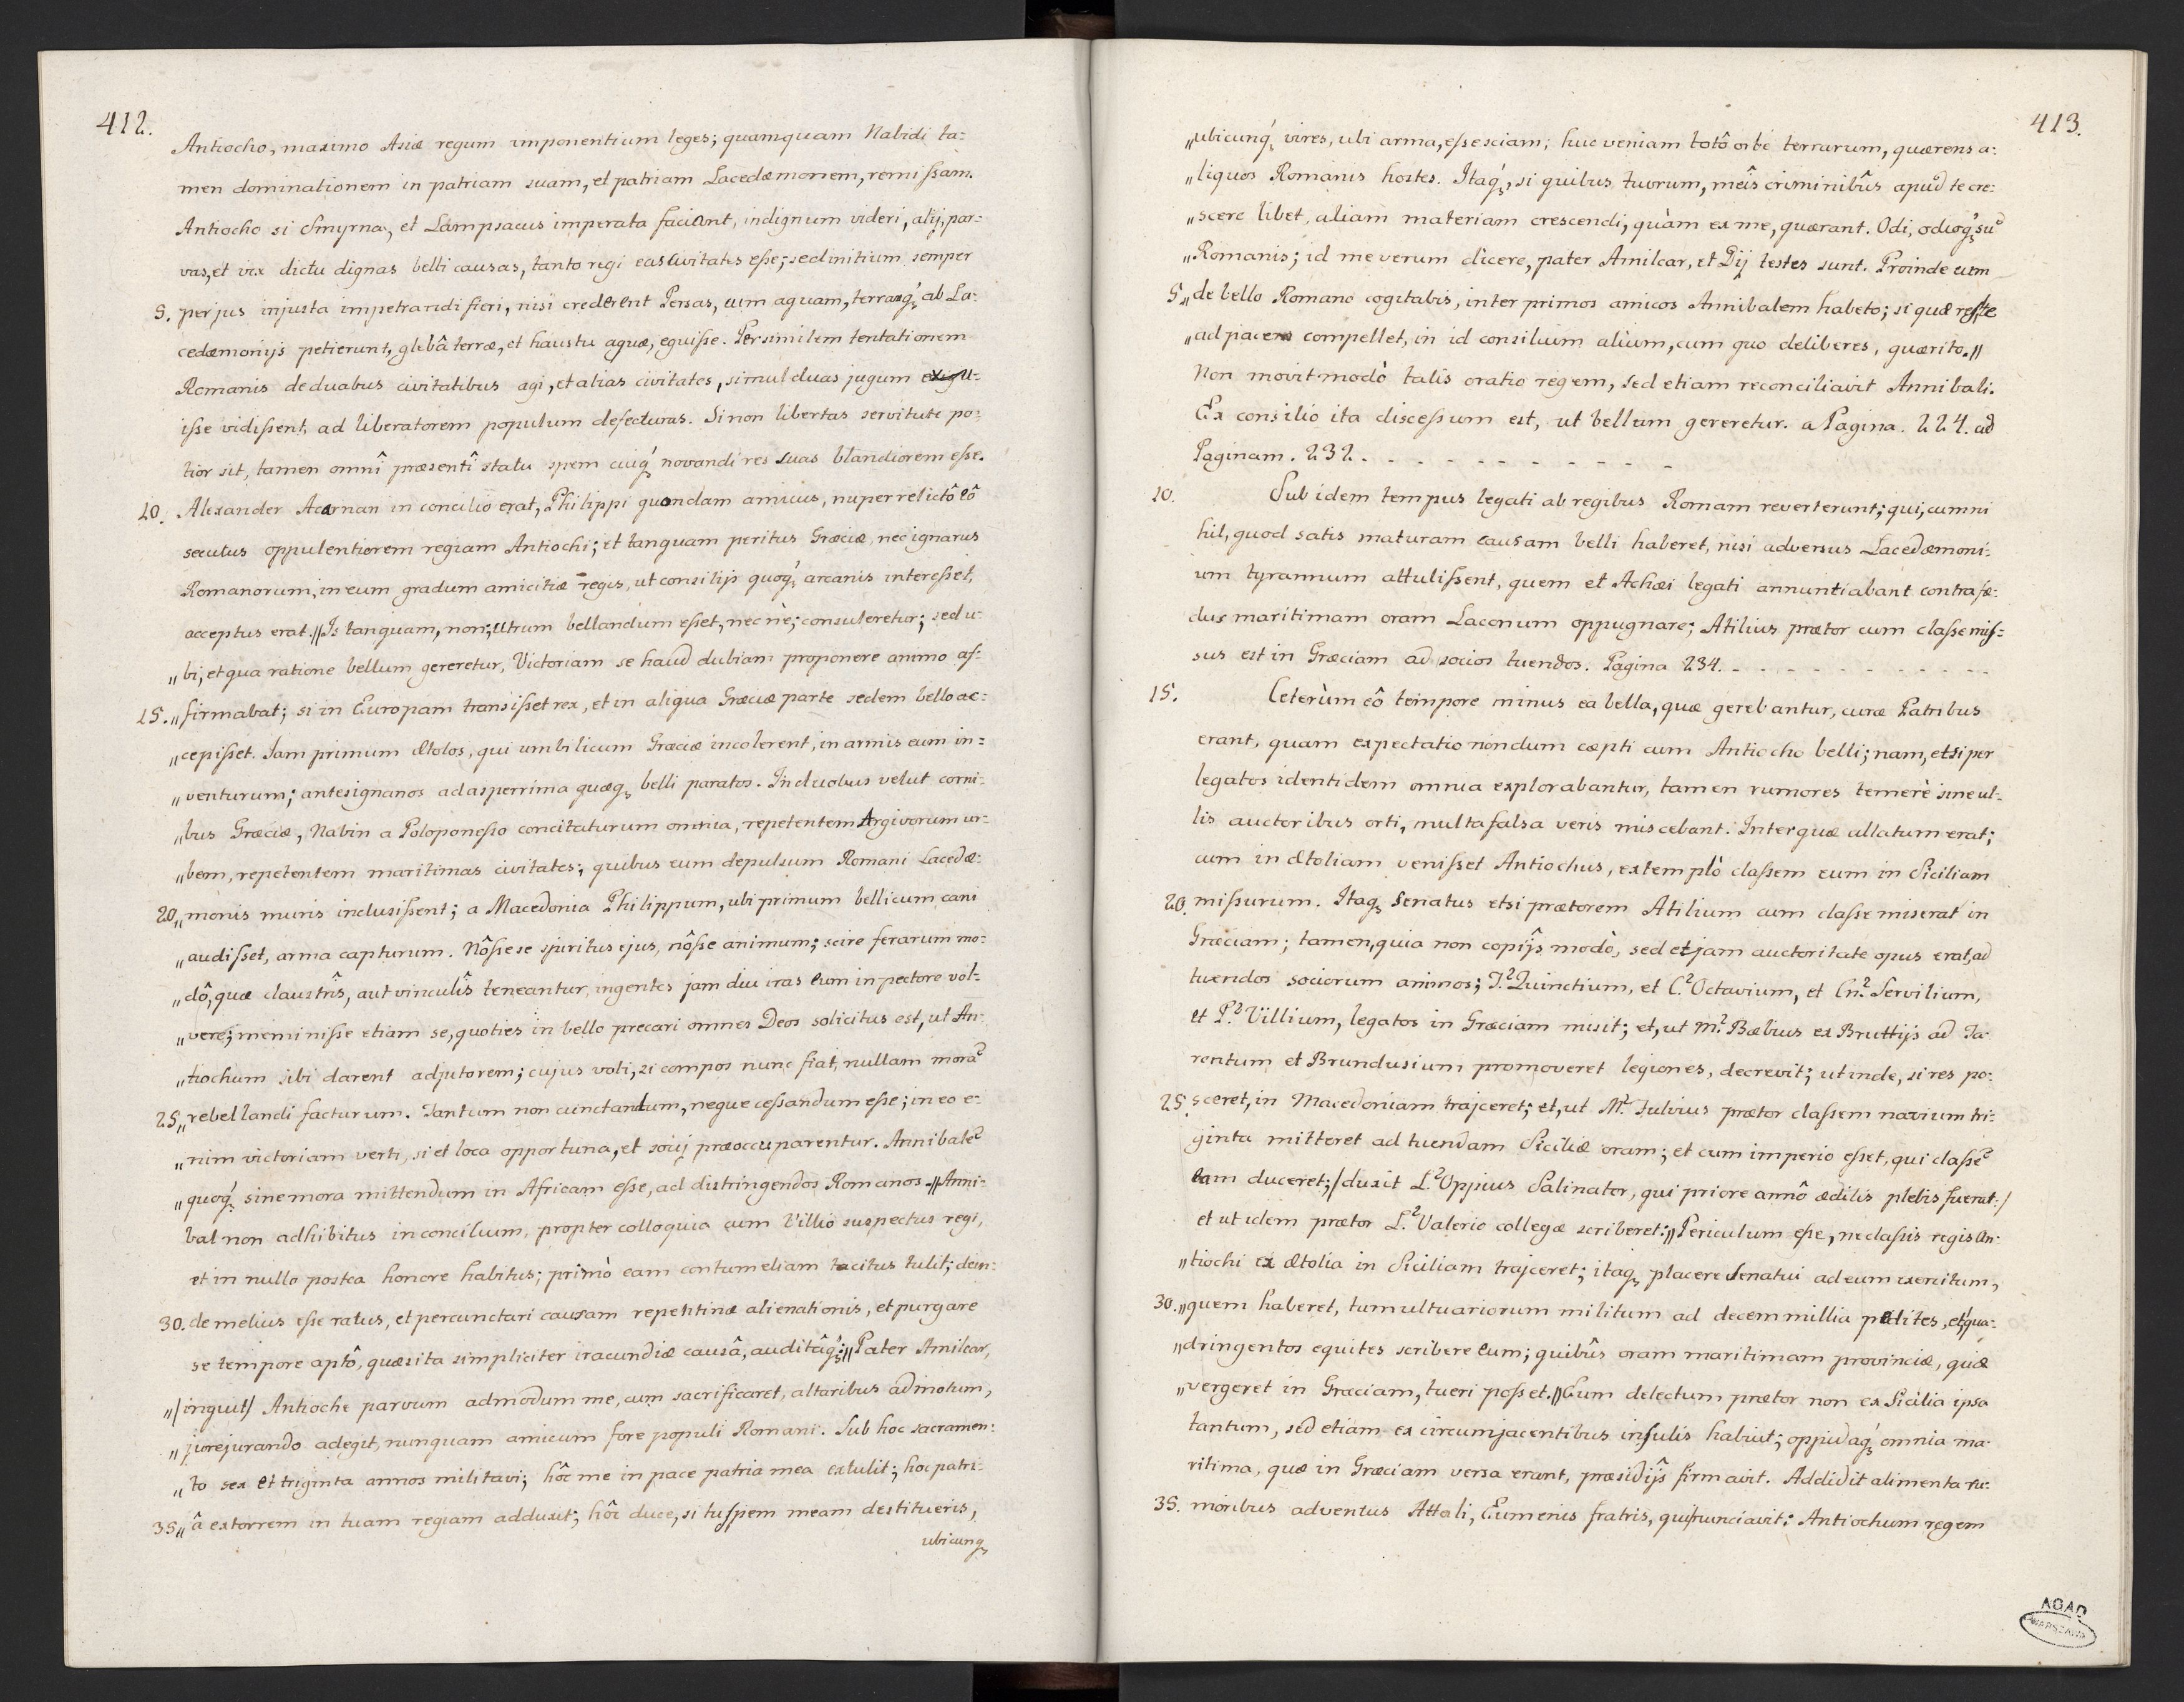 412.
Antiocho, maximo Asiæ regum imponentium leges; quamquam Nabidi ta=
men dominationem in patriam suam, et patriam Lacedæmonem, remissam.
Antiocho si Smyrna, et Lampsacus imperata faciant, indignum videri, alij, par=
vas, et vix dictu dignas belli causas, tanto regi eas civitates esse; sed initium semper
5. per jus injusta impetrandi fieri, nisi crederent Persas, cum aquam, terramq́ ab La=
cedæmonijs petierunt, glebâ terræ, et haustu aquæ, eguisse. Per similem tentationem
Romanis de duabus civitatibus agi, et alias civitates, simul duas jugum exigu=
isse vidissent, ad liberatorem populum defecturas. Si non libertas servitute po=
tior sit, tamen omnî præsentî statu spem cuiq́ novandi res suas blandiorem esse.
10. Alexander Acarnan in concilio erat, Philippi quondam amicus, nuper relictô eô
secutus oppulentiorem regiam Antiochi; et tanquam peritus Græciæ, nec ignarus
Romanorum, in eum gradum amicitiæ regis, ut consilijs quoq́ arcanis interesset,
acceptus erat.〃Is tanquam, non; utrum bellandum esset, nec nè; consuleretur; sed u=
〃bi, et qua ratione bellum gereretur, Victoriam se haud dubiam proponere animo af=
15.〃firmabat; si in Europam transisset rex, et in aliqua Græciæ parte sedem bello ac=
〃cepisset. Jam primum Ætolos, qui umbilicum Græciæ incolerent, in armis eum in=
〃venturum; antesignanos ad asperrima quæq belli paratos. In duobus velut corni=
〃bus Græciæ, Nabin a Poloponesso concitaturum omnia, repetentem Argivorum ur=
〃bem, repetentem maritimas civitates; quibus eum depulsum Romani Lacedæ=
20.〃monis muris inclusissent; a Macedonia Philippum, ubi primum bellicum cani
〃audisset, arma capturum. Nôsse se spiritus ejus, nôsse animum; scire ferarum mo=
〃dô, quæ claustrîs, aut vinculîs teneantur, ingentes jam diu iras eum in pectore vol=
〃vere; meminisse etiam se, quoties in bello precari omnes Deos solicitus est, ut An=
〃tiochum sibi darent adjutorem; cujus voti, si compos nunc fiat, nullam morã
25.〃rebellandi facturum. Tantum non cunctandum, neque cessandum esse; in eo e=
〃nim victoriam verti, si et loca opportuna, et socij præoccuparentur. Annibalẽ
〃quoq́ sine mora mittendum in Africam esse, ad distringendos Romanos.〃Anni=
bal non adhibitus in concilium, propter colloquia cum Villio suspectus regi,
et in nullo postea honore habitus; primò eam contumeliam tacitus tulit; dein=
30. de melius esse ratus, et percunctari causam repentinæ alienationis, et purgare
se tempore aptô, quæsita simpliciter iracundiæ causâ, auditâq́;〃Pater Amilcar,
〃/inquit/ Antioche parvum admodum me, cum sacrificaret, altaribus admotum,
〃jurejurando adegit, nunquam amicum fore populi Romani. Sub hoc sacramen=
〃to sex et triginta annos militavi; hôc me in pace patria mea extulit; hoc patri=
35.〃â extorrem in tuam regiam adduxit; hôc duce, si tu spem meam destitueris,
ubicunq
413.
〃ubicunq́ vires, ubi arma, esse sciam; huc veniam totô orbê terrarum, quærens a=
〃liquos Romanis hostes. Itaq́, si quibus tuorum, meîs criminibûs apud te cre=
〃scere libet, aliam materiam crescendi, quàm ex me, quærant. Odi, odioq́ sũ
〃Romanis; id me verum dicere, pater Amilcar, et Dij testes sunt. Proinde cum
5.〃de bello Romano cogitabis, inter primos amicos Annibalem habeto; si quæ res te
〃ad pacem compellet, in id consilium alium, cum quo deliberes, quærito.〃
Non movit modò talis oratio regem, sed etiam reconciliavit Annibali.
Ex consilio ita discessum est, ut bellum gereretur. a Pagina. 224. ad
Paginam. 232. - - - - - - - - - -
10. Sub idem tempus legati ab regibus Romam reverterunt; qui, cum ni
hil, quod satis maturam causam belli haberet, nisi adversus Lacedæmoni=
um tyrannum attulissent, quem et Achæi legati annuntiabant contra fæ=
dus maritimam oram Laconum oppugnare; Atilius prætor cum classe mis=
sus est in Græciam ad socios tuendos. Pagina 234. - - - - - - - - - -
15. Ceterùm eô tempore minus ea bella, quæ gerebantur, curæ Patribus
erant, quam expectatio nondum cæpti cum Antiocho belli; nam, etsi per
legatos identidem omnia explorabantur, tamen rumores temerè sine ul=
lis auctoribus orti, multa falsa veris miscebant. Inter quæ allatum erat;
cum in Ætoliam venisset Antiochus, extemplò classem eum in Siciliam
20. missurum. Itaq Senatus etsi prætorem Atilium cum classe miserat in
Græciam; tamen, quia non copijs modò, sed etjam auctoritate opus erat, ad
tuendos sociorum animos; T.² Quinctium, et C.² Octavium, et Cn.² Servilium,
et P.² Villium, legatos in Græciam misit; et, ut M.² Bæbius ex Bruttijs ad Ta
rentum et Brundusium promoveret legiones, decrevit; ut inde, si res po=
25. sceret, in Macedoniam trajceret; et, ut M.² Fulvius prætor classem navium tri=
ginta mitteret ad tuendam Siciliæ oram; et cum imperio esset, qui classẽ
eam duceret; /duxit L.² Oppius Salinator, qui priore annô ædilis plebis fuerat:/
et ut idem prætor L.² Valerio collegæ scriberet:〃Periculum esse, ne classis regis An=
〃tiochi ex Ætolia in Siciliam trajceret; itaq placere Senatui ad eum exercitum,
30.〃quem haberet, tumultuariorum militum ad decem millia pedites, et qua=
〃dringentos equites scribere eum; quibûs oram maritimam provinciæ, quæ
〃vergeret in Græciam, tueri posset.〃Eum delectum prætor non ex Sicilia ipsa
tantum, sed etiam ex circumjacentibus insulis habuit; oppidaq́ omnia ma=
ritima, quæ in Græciam versa erant, præsidijs firmavit. Addidit alimenta ru=
35. moribus adventus Attali, Eumenis fratris, qui nunciavit: Antiochum regem
AGAD
WARSZAWA